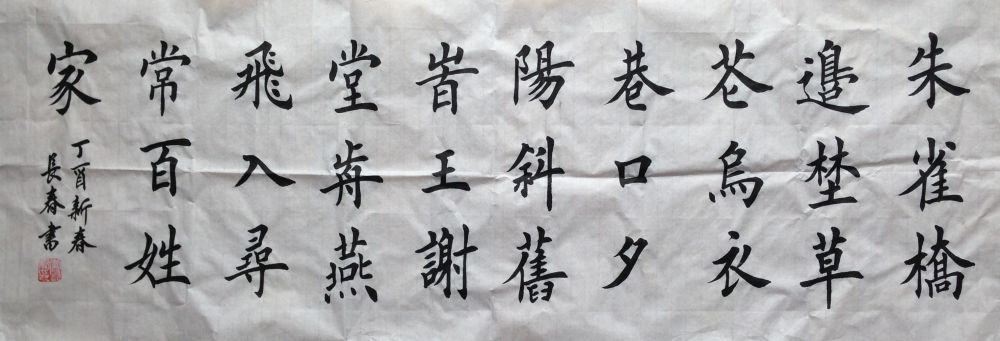 朱雀橋
邉埜草
花烏衣
巷口夕
陽斜舊
旹王謝
堂歬燕
飛入尋
常百姓
家
丁酉新春
長春書